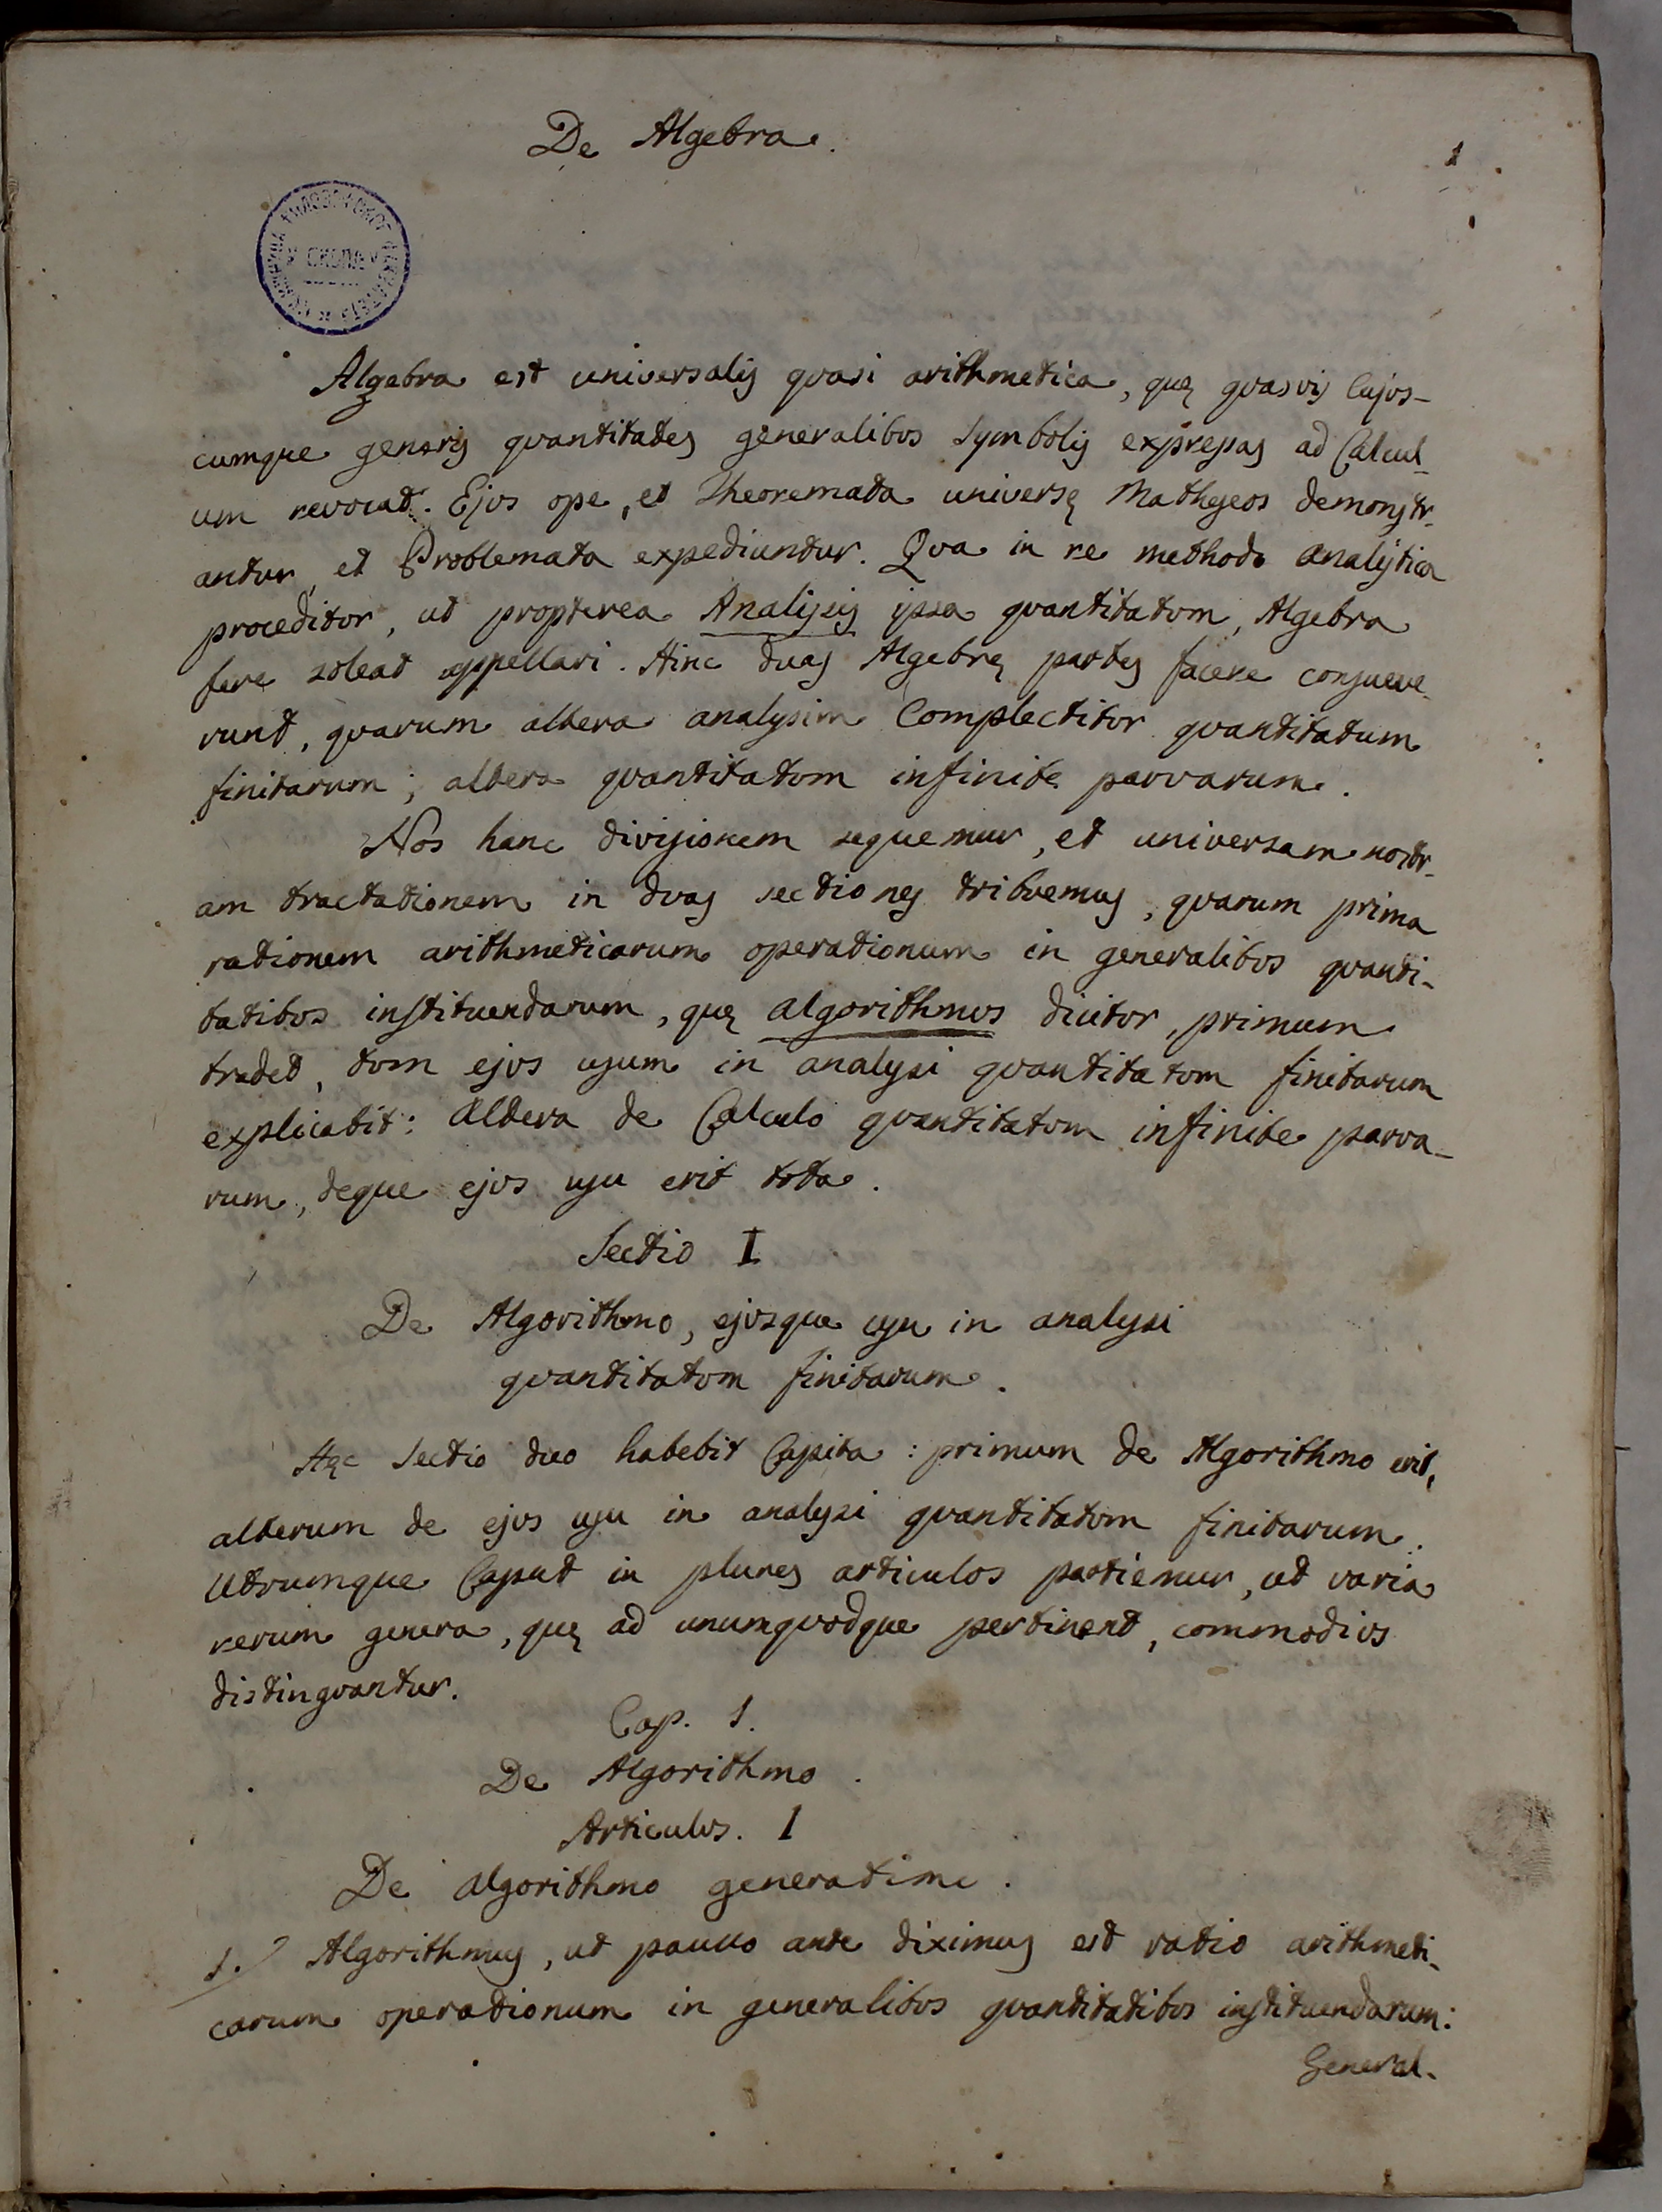 De Algebra.
1
У СКОПЉУ
Algebra est universalis quasi arithmetica, quę quasvis cujus-
cumque generis quantitates generalibus Symbolis expressas ad Calcul-
um revocat. Ejus ope, et Theoremata universę Matheseos demonstr-
antur, et Problemata expediuntur. Qua in re methodo analÿtica
proceditur, ut propterea Analysis ipsa quantitatum, Algebra
fere soleat appellari. Hinc duas Algebrę partes facere consueve-
runt, quarum altera analysim Complectitur quantitatum
finitarum; altera quantitatum infinite parvarum.
Nos hanc divisionem sequemur, et universam nostr-
am tractationem in duas sectiones tribuemus, quarum prima
rationem arithmeticarum operationum in generalibus quanti-
tatibus instituendarum, quę algorithmus dicitur, primum
tradet, tum ejus usum in analysi quantitatum finitarum
explicabit: altera de Calculo quantitatum infinite parva-
rum, deque ejus usu erit tota.
Sectio I
De Algorithmo, ejusque usu in analysi
quantitatum finitarum.
Hęc Sectio duo habebit Capita: primum de Algorithmo erit,
alterum de ejus usu in analysi quantitatum finitarum.
Utrumque Caput in plures articulos partiemur, ut varia
rerum genera, quę ad unumquodque pertinent, commodius
distinguantur.
Cap. 1.
De Algorithmo.
Articulus. I
De algorithmo generatim.
1. Algorithmus, ut paullo ante diximus est ratio arithmeti-
carum operationum in generalibus quantitatibus instituendarum:
General-